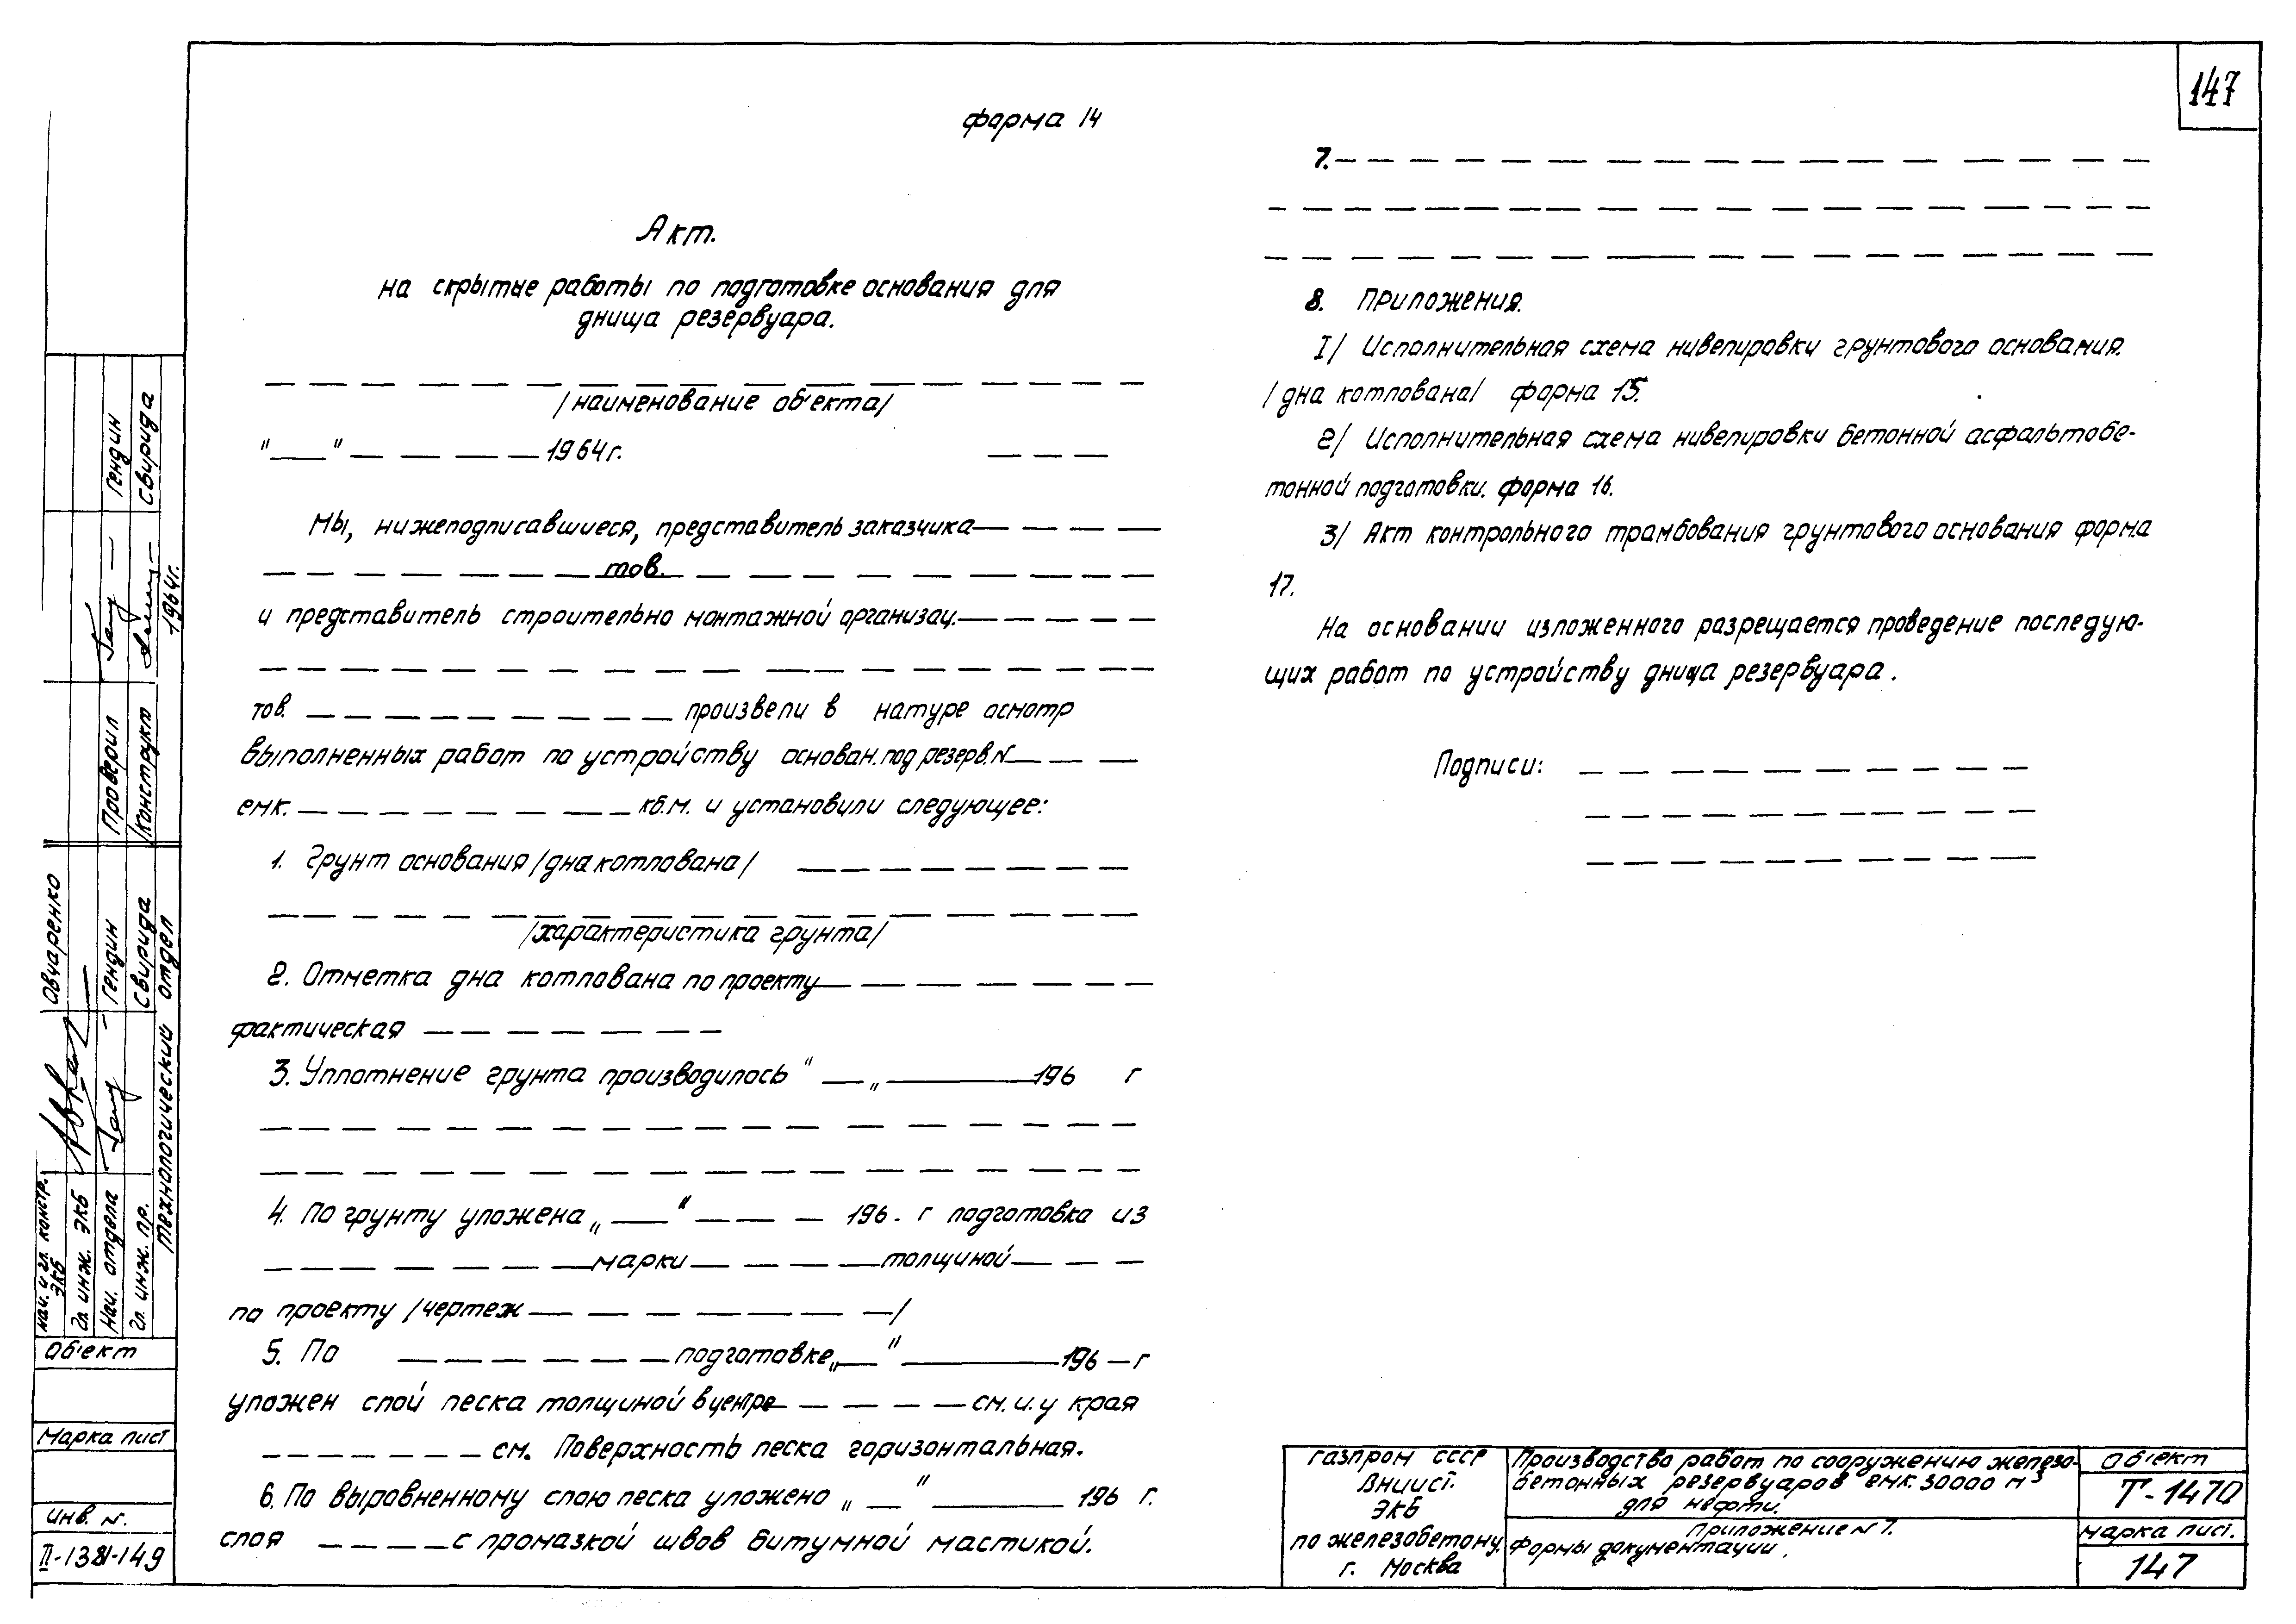 147
форма 14
Акт.
на скрытые работы по подготовке основания для
днища резервуара.
/наименование об'екта/
"___" — — — — 1964г.
Мы, нижеподписавшиеся, представитель заказчика
тов.
и представитель строительно монтажной организац.
тов. произвели в натуре осмотр
выполненных работ по устройству основан. под резерв. N
емк. кб.м. и установили следующее:
1. Грунт основания /дна котлована/
/характеристика грунта/
2. Отметка дна котлована по проекту
фактическая
3. Уплотнение грунта производилось "__" ______ 196 г
4. По грунту уложена „___" — — — 196 - г подготовка из
марки толщиной
по проекту /чертеж /
5. По подготовке „__" ______ 196 — г
уложен слой песка толщиной в центре см. и. у края
см. Поверхность песка горизонтальная.
6. По выровненному слою песка уложено „__" ______ 196 г.
слоя с промазкой швов битумной мастикой.
7.
8. Приложения.
1/ Исполнительная схема нивелировки грунтового основания.
/дна котлована/ форма 15.
2/ Исполнительная схема нивелировки бетонной асфальтобе-
тонной подготовки. форма 16.
3/ Акт контрольного трамбования грунтового основания форма
17.
На основании изложенного разрещается проведение последую-
щих работ по устройству днища резервуара.
Подписи:
Газпром СССР
ВНИИСТ.
ЭКБ
по железобетону.
г. Москва
Производство работ по сооружению железо-
бетонных резервуаров емк. 30000 м³
для нефти.
Приложение N 7.
Формы документации.
Об'ект
Т-1470
марка лист.
147
нач. и гл. констр.
ЭКБ
Овчаренко
Гл. инж. ЭКБ
Нач. отдела
Гендин
Проверил
Гендин
Гл. инж. пр.
Свирида
Конструкт
Свирида
технологический отдел
1964г.
Об'ект
Марка лист
Инв. N.